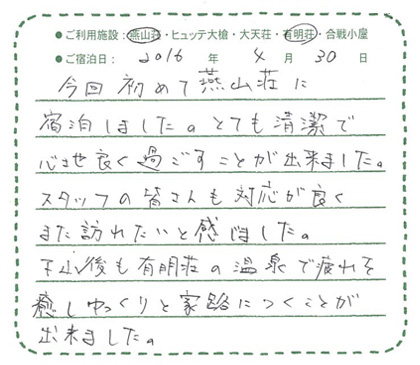 ●ご利用施設：燕山荘・ヒュッテ大槍・大天荘・有明荘・合戦小屋
●ご宿泊日： 2016 年 4 月 30 日
今回初めて燕山荘に
宿泊しました。とても清潔で
心地良く過ごすことが出来ました。
スタッフの皆さんも対応が良く
また訪れたいと感じました。
下山後も有明荘の温泉で疲れを
癒しゆっくりと家路につくことが
出来ました。